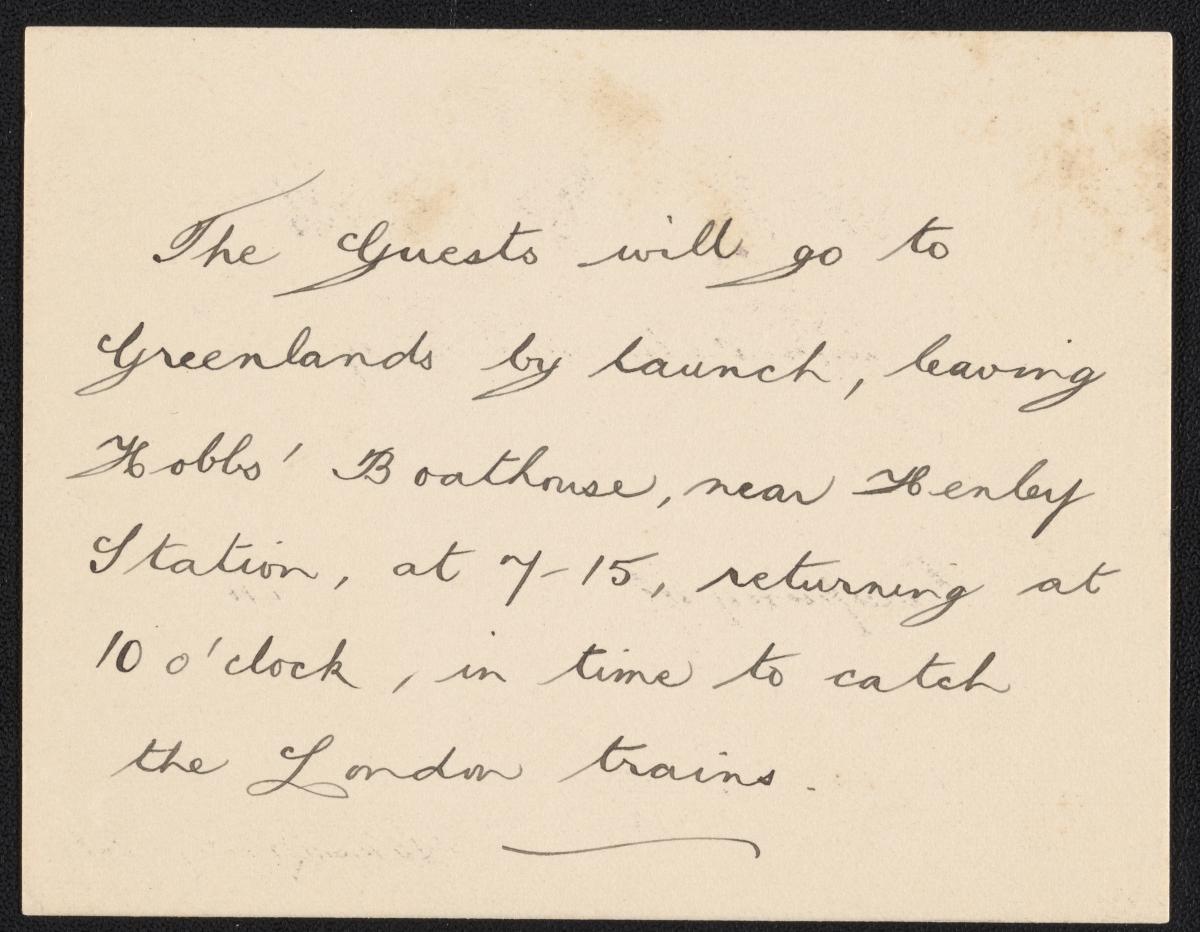 The Guests will go to
Greenlands by launch, leaving
Hobbs' Boathouse, near Henley
Station, at 7-15, returning at
10 o'clock, in time to catch
the London trains.